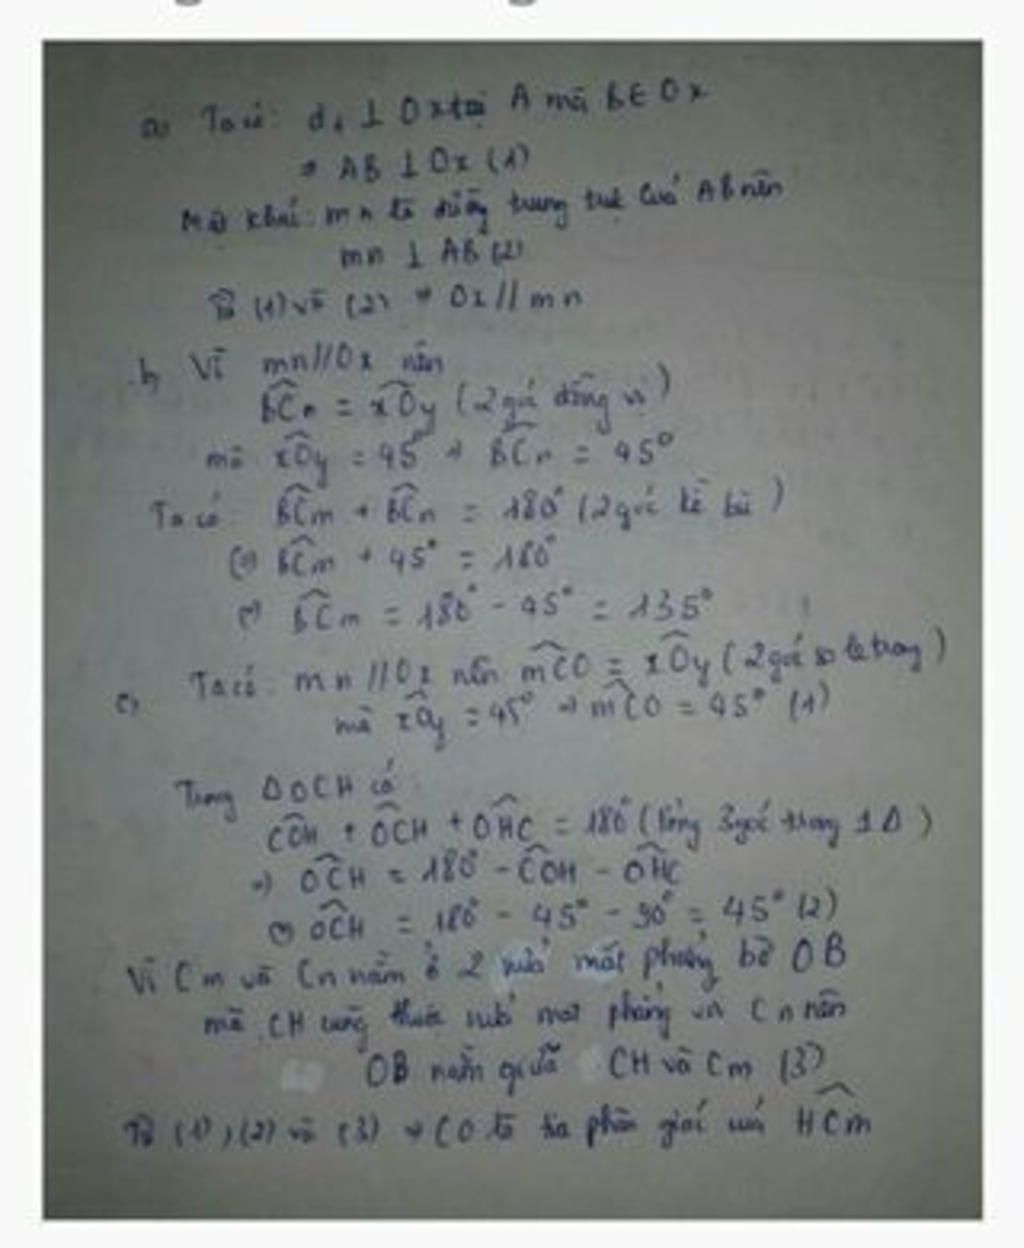 a) Ta có: d₁ ⊥ Ox tại A mà B ∈ Ox
⇒ AB ⊥ Ox (1)
Mặt khác: mn là đường trung trực của AB nên
mn ⊥ AB (2)
Từ (1) và (2) ⇒ Ox // mn
b, Vì mn // Ox nên
BĈn = xÔy (2 góc đồng vị)
mà xÔy = 45° ⇒ BĈn = 45°
Ta có: BĈm + BĈn = 180° (2 góc kề bù)
(=) BĈm + 45° = 180°
(=) BĈm = 180° - 45° = 135°
c, Ta có: mn // Ox nên mĈO = xÔy (2 góc so le trong)
mà xÔy = 45° ⇒ mĈO = 45° (1)
Trong ΔOCH có:
CÔH + OĈH + OĤC = 180° (tổng 3 góc trong 1 Δ)
=) OĈH = 180° - CÔH - OĤC
(=) OĈH = 180° - 45° - 90° = 45° (2)
Vì Cm và Cn nằm ở 2 nửa mặt phẳng bờ OB
mà CH cùng thuộc nửa mặt phẳng với Cn nên
OB nằm giữa CH và Cm (3)
Từ (1), (2) và (3) ⇒ CO là tia phân giác của HĈm